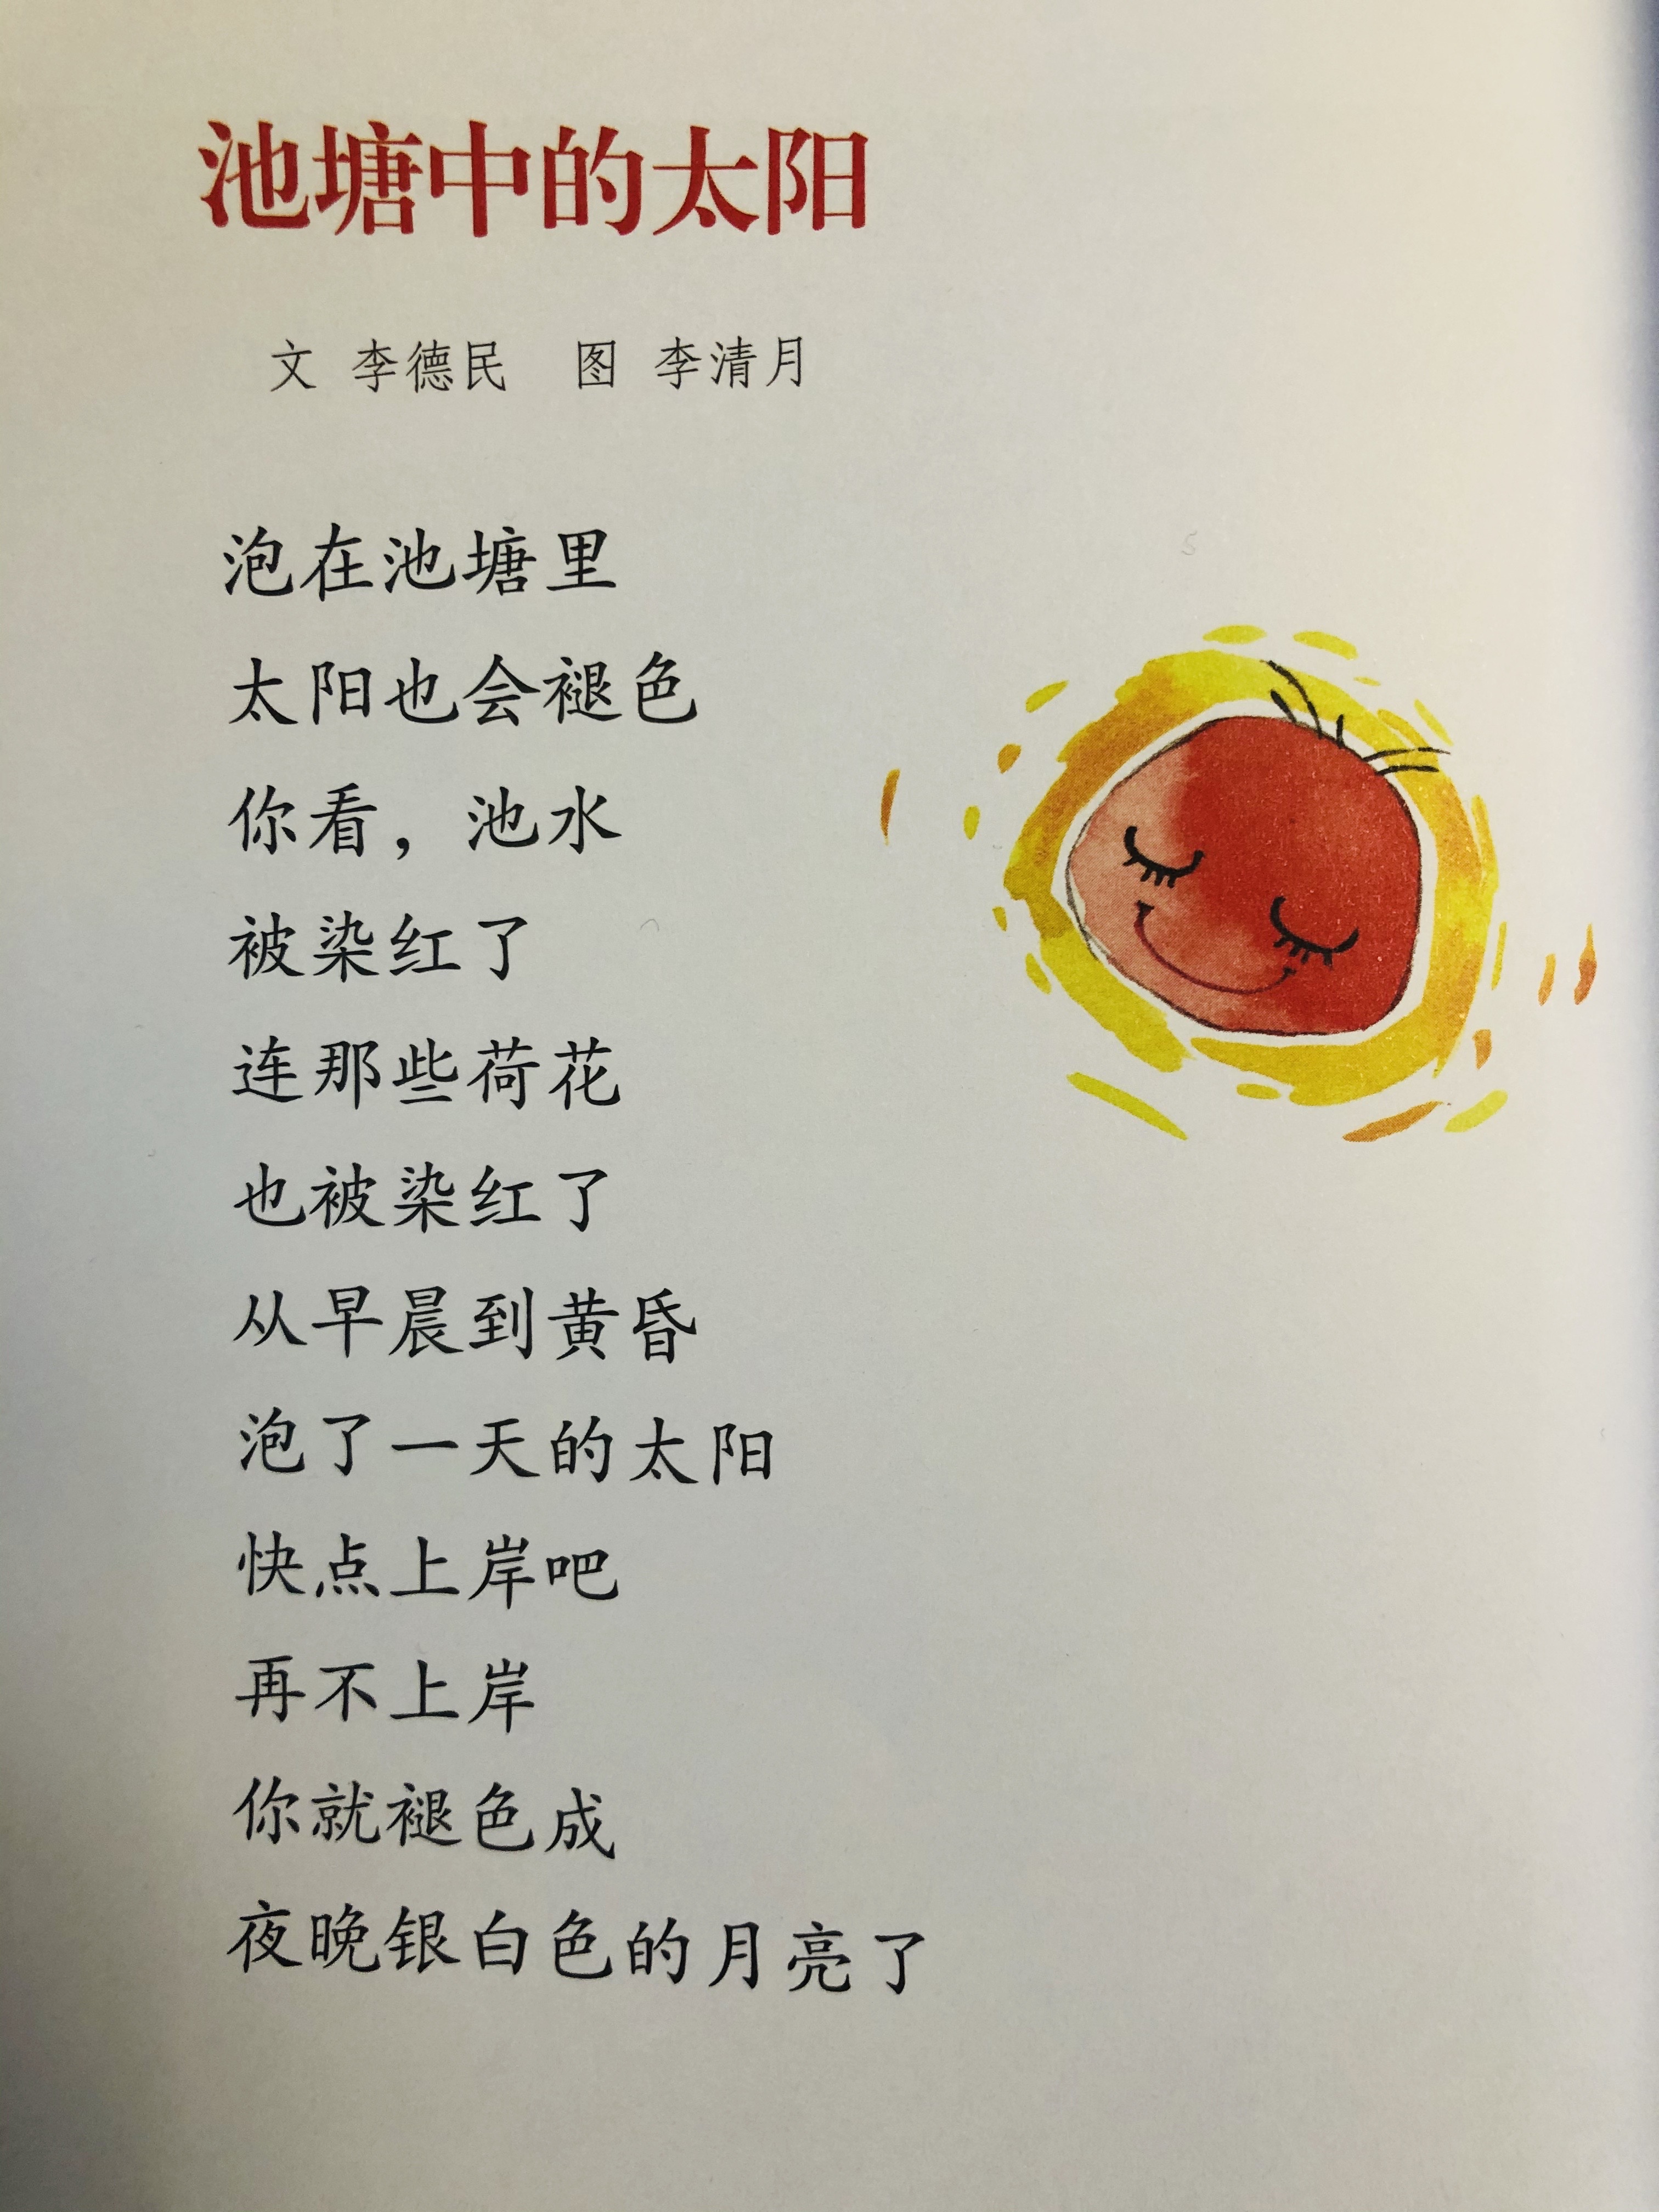 池塘中的太阳
文 李德民 图 李清月
泡在池塘里
太阳也会褪色
你看，池水
被染红了
连那些荷花
也被染红了
从早晨到黄昏
泡了一天的太阳
快点上岸吧
再不上岸
你就褪色成
夜晚银白色的月亮了